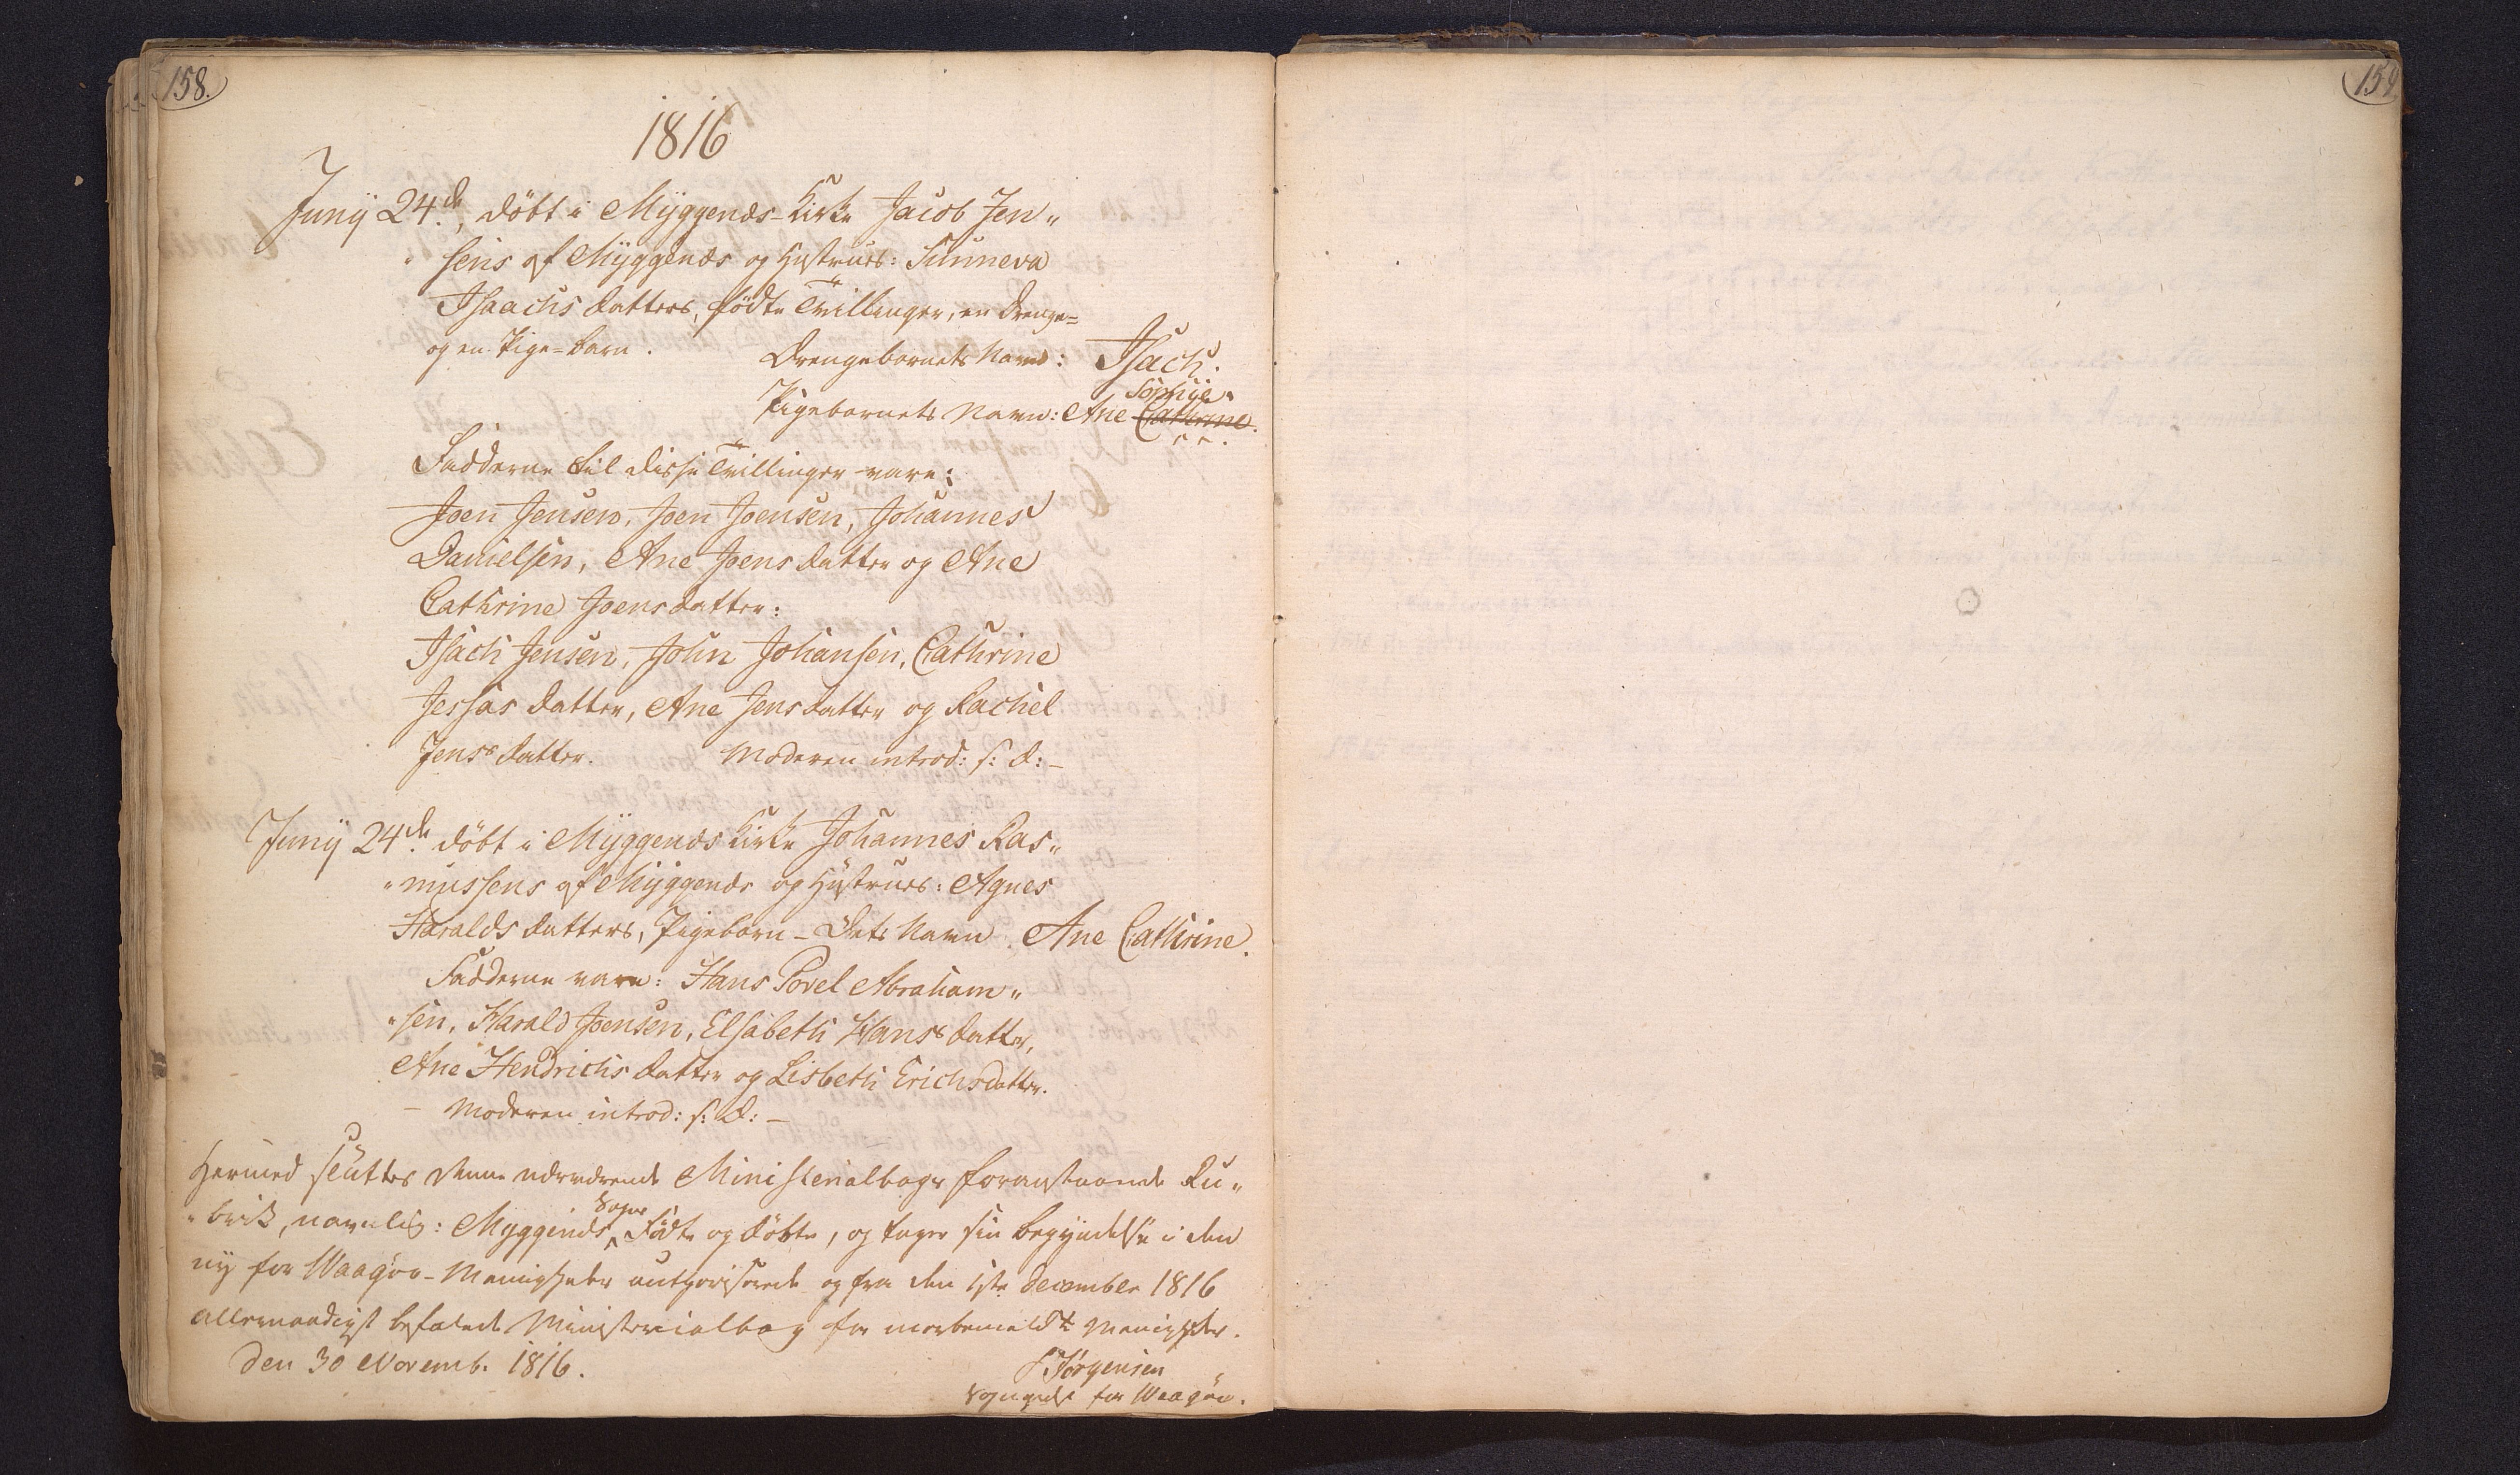 158.
1816
Junÿ 24de, döbt i Mÿggenæs-Kirke Jacob Jen„
„sens af Mÿggenæs og Hustrues: Sunneva
Isaachs datters, födte Tvillinger, en Drenge=
og en Pige=barn.
Drengebarnets Navn: Isach.
Sophÿe.
Pigebarnets Navn: Ane Cathrine.
Fadderne til disse Tvillinger vare:
Joen Jensen, Joen Joensen, Johannes
Danielsen, Ane Joens datter og Ane
Cathrine Joensdatter:
Isach Jensen, John Johansen, Cathrine
Jessas datter, Ane Jensdatter og Rachel
Jens datter. Moderen introd: s: d: –
Junÿ 24de döbt i Mÿggenæs Kirke Johannes Ras„
„mussens af Mÿggenæs og Hustrues: Agnes
Haralds datters, Pigebarn – Dets Navn. Ane Cathrine.
Fadderne vare: Hans Povel Abraham„
„sen, Harald Joensen, Elsabeth Hans datter,
Ane Hendrichs datter og Lisbeth Erichsdatter.
– Moderen introd: s: d: –
Hermed sluttes denne nærværende Ministerialbogs foranstaaende Ru„
„brik, navnlig: Myggenæs Sogns Födte og döbte, og tager sin begyndelse i den
ny for Waagöe-Menigheder authoriserede og fra den 1ste December 1816
allernaadigst befalede Ministerialbog for merbemeldte Menigheder.
Den 30 Novemb. 1816.
Jörgensen
Sognepræst for Waagöe.
159